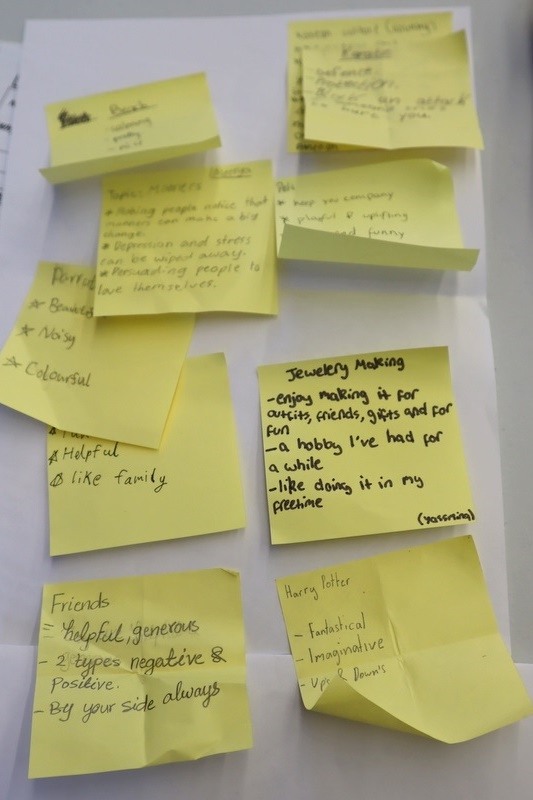 Karate
- Defence
- Protection
- Block an attack
Beach
Topic: Mirrors
* Making people notice that
mirrors can make a big
change.
* Depression and stress
can be wiped away.
* Persuading people to
love themselves.
Pets
* keep you company
* playful & uplifting
funny
Parrot
* Beautiful
* Noisy
* Colourful
Helpful
like family
Jewelery Making
-enjoy making it for
outfits, friends, gifts and for
fun
-a hobby I've had for
a while
-like doing it in my
freetime
(Yassming)
Friends
= helpful, generous
- 2 types negative &
Positive.
- By your side always
Harry Potter
- Fantastical
- Imaginative
- Up's & Down's